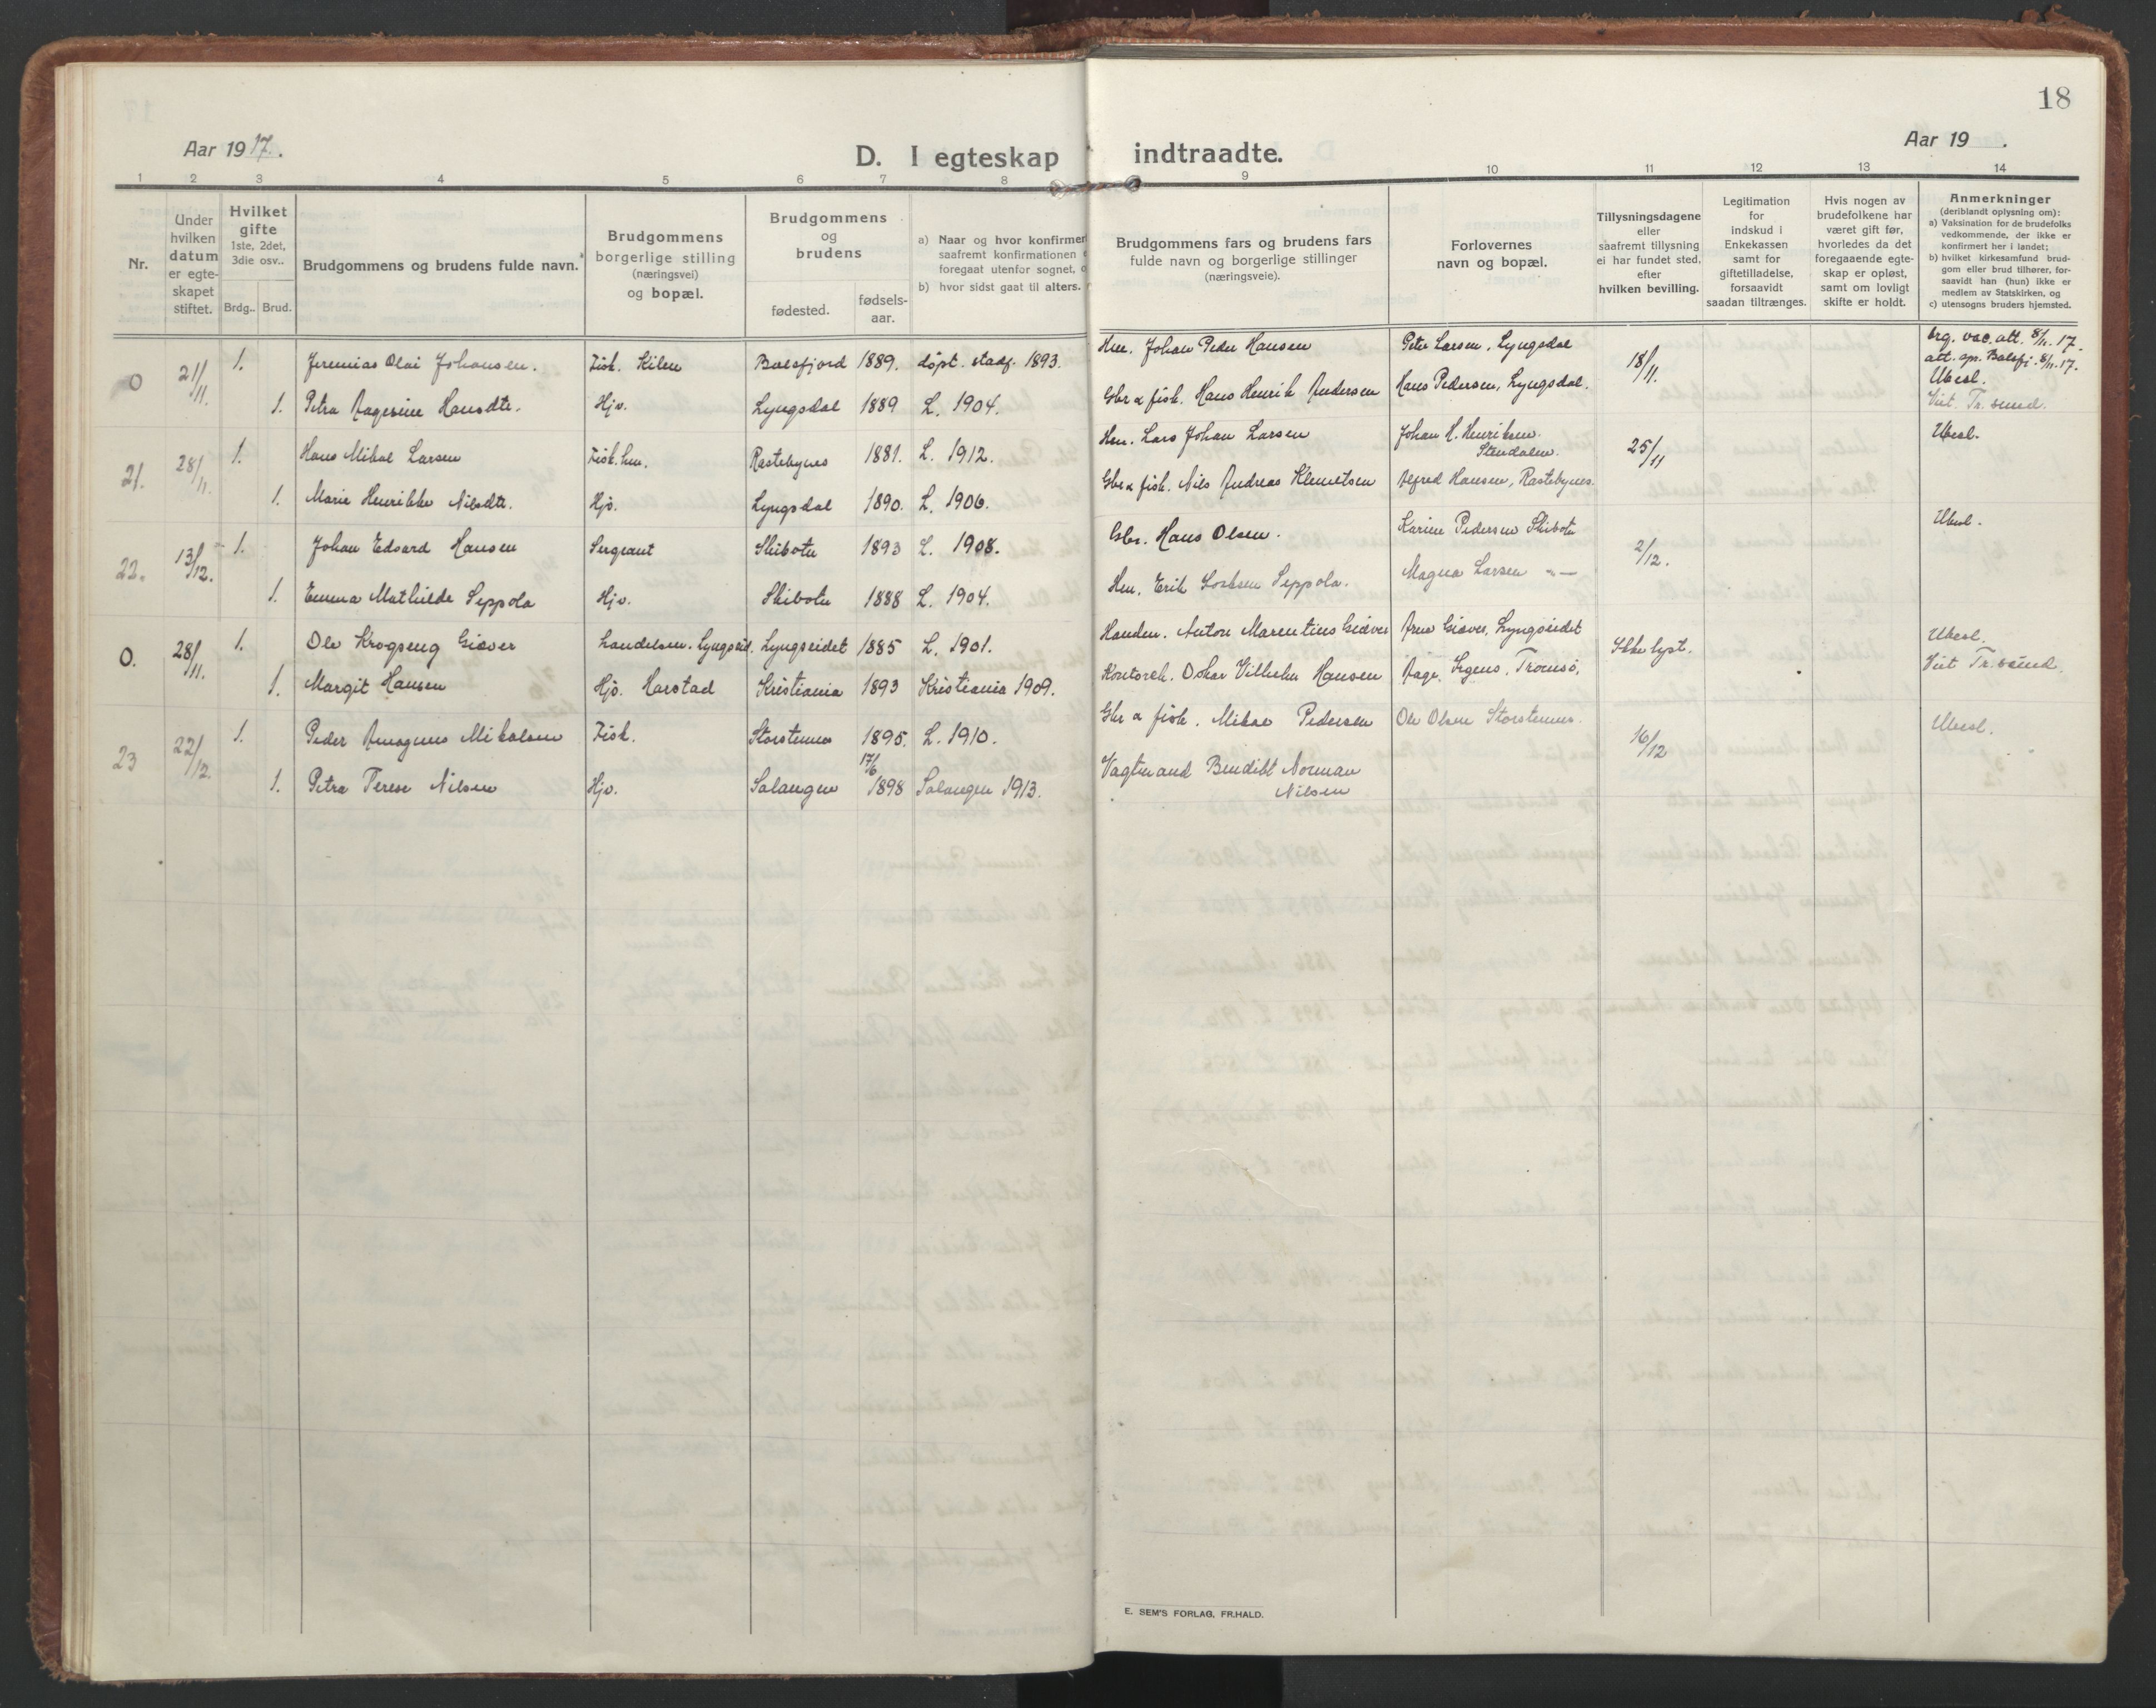 18
Aar 1917.
Aar 19 .
D. I egteskap indtraadte.
1 2 3 4 5 6 7 8 9 10 11 12 13 14
Nr.
Under
hvilken
datum
er egte-
skapet
stiftet.
Hvilket
gifte
1ste, 2det,
3die osv..
Brdg.. Brud.
Brudgommens og brudens fulde navn.
Brudgommens
borgerlige stilling
(næringsvei)
og bopæl.
Brudgommens
og
brudens
fødested.
fødsels-
aar.
a) Naar og hvor konfirmer
saafremt konfirmationen
foregaat utenfor sognet,
b) hvor sidst gaat til alters.
Brudgommens fars og brudens fars
fulde navn og borgerlige stillinger
(næringsveie).
Forlovernes
navn og bopæl.
Tillysningsdagene
eller
saafremt tillysning
ei har fundet sted,
efter
hvilken bevilling.
Legitimation
for
indskud i
Enkekassen
samt for
giftetilladelse,
forsaavidt
saadan tiltrænges.
Hvis nogen av
brudefolkene har
været gift før,
hvorledes da det
foregaaende egte-
skap er opløst,
samt om lovligt
skifte er holdt.
Anmerkninger
(deriblandt oplysning om):
a) Vaksination for de brudefolks
vedkommende, der ikke er
konfirmert her i landet;
b) hvilket kirkesamfund brud-
gom eller brud tilhører, for-
saavidt han (hun) ikke er
medlem av Statskirken, og
c) utensogns bruders hjemsted.
0 21/11. 1. Jeremias Olai Johansen. Fisk. Kilen Balsfjord 1889. døpt. stadf. 1893. Hm. Johan Peder Hansen Peter Larsen, Lyngsdal 18/11. brg. vac. att. 8/11. 17.
att. op. Balsfj. 8/11. 17.
Ubesl.
1. Petra Aagesine Hansdtr. Hjv. Lyngsdal 1889 L. 1904. Gbr & fisk. Hans Henrik Andersen Hans Pedersen, Lyngsdal. Viet. Tr. sund.
21. 28/11. 1. Hans Mikal Larsen Fisk. hm. Rastebynes 1881. L. 1912. Hm. Lars Johan Larsen Johan H. Henriksen. 25/11 Ubesl.
1. Marie Henrikke Nilsdtr. Hjv. Lyngsdal 1890. L. 1906. Gbr & fisk. Nils Andreas Klemetsen Alfred Hansen, Rastebynes.
22. 13/12. 1. Johan Edvard Hansen Sergeant Skibotn 1893 L. 1908. Gbr. Hans Olsen. Karine Pedersen Skibotn 2/12. Ubesl.
1. Emma Mathilde Seppola Hjv. Skibotn 1888 L. 1904. Hm. Erik Seppola. Magna Larsen -"-
0. 28/11. 1. Ole Krogseng Giæver Landelsm. Lyngseid. Lyngseidet 1885 L. 1901. Handm. Anton Marentius Giæver Arne Giæver, Lyngseidet Ikke lyst. Ubesl.
1. Margit Hansen Hjv. Harstad Kristiania 1893 Kristiania 1909. Kontorch. Oskar Vilhelm Hansen Aage Tromsø. Viet Tr. sund.
23 22/12. 1. Peder Amagnus Mikalsen Fisk. Storstennes 1895. L. 1910. Gbr & fisk. Mikae Pedersen Ole Olsen Storstennes. 16/12 Ubesl.
1. Petra Terese Nilsen Hjv. Salangen 17/6 1898 Salangen 1913. Vagtmand Bendikt Norman
Nilsen
E. SEM'S FORLAG, FR.HALD.